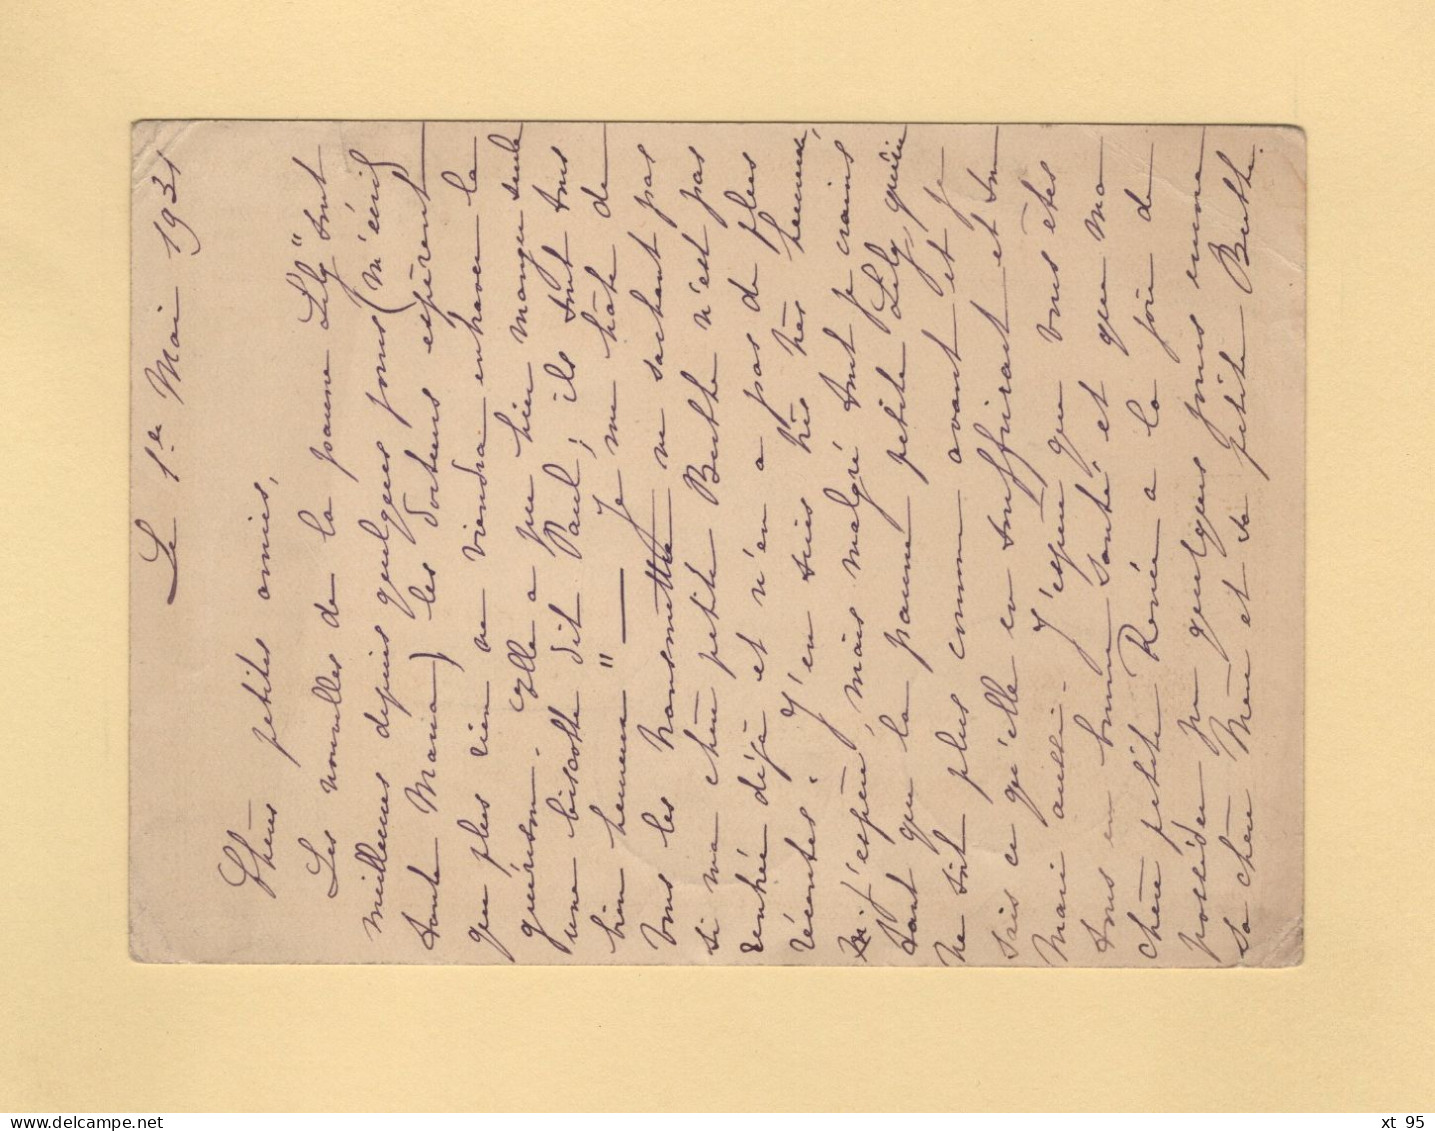 Le 1er Mai 1931
Chères petites amies,
Les nouvelles de la pauvre Lily "sont
meilleures depuis quelques jours (m'écrit
tante Maria) les docteurs espèrent
que plus rien ne viendra entraver la
guérison. Elle a pu bien manger seule
une biscotte dit Paul ; ils sont tous
bien heureux" — Je me hâte de
vous les transmettre ne sachant pas
si ma chère petite Berthe n'est pas
rentrée déjà et n'en a pas de plus
récentes. J'en suis très très heureuse,
j'espère, mais malgré tout je crains
tant que la pauvre petite Lily guérie
ne soit plus comme avant et je
sais ce qu'elle en souffrirait et son
Mari aussi. J'espère que vous êtes
tous en bonne santé et que ma
chère petite Renée a la joie de
posséder pr quelques jours encore
sa chère Mère et sa petite Berthe.
xt 95
delcampe.net